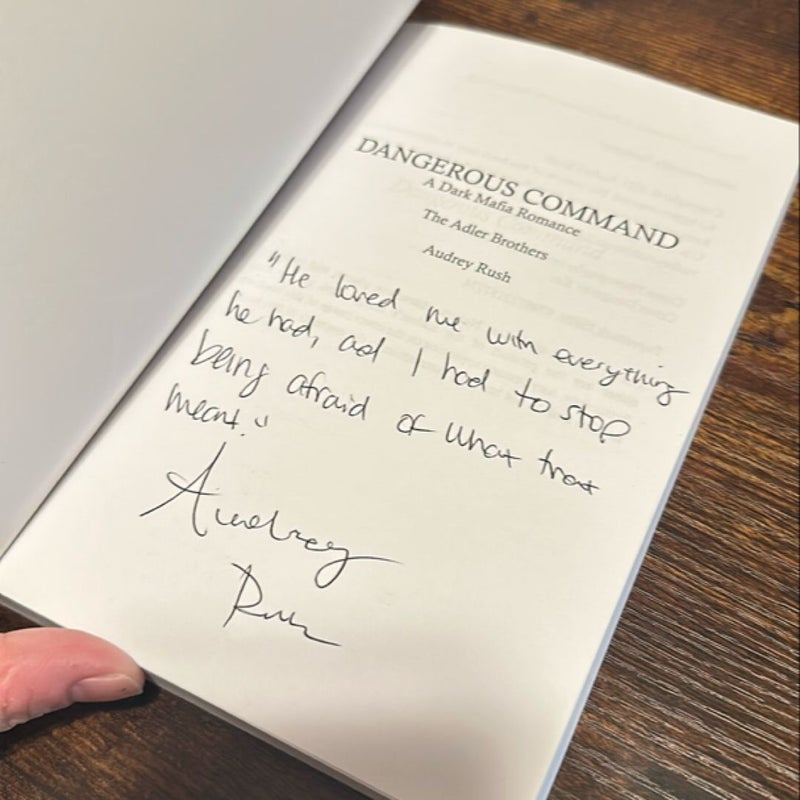 DANGEROUS COMMAND
A Dark Mafia Romance
The Adler Brothers
Audrey Rush
"He loved me with everything
he had, and I had to stop
being afraid of what that
meant."
Audrey
Rush